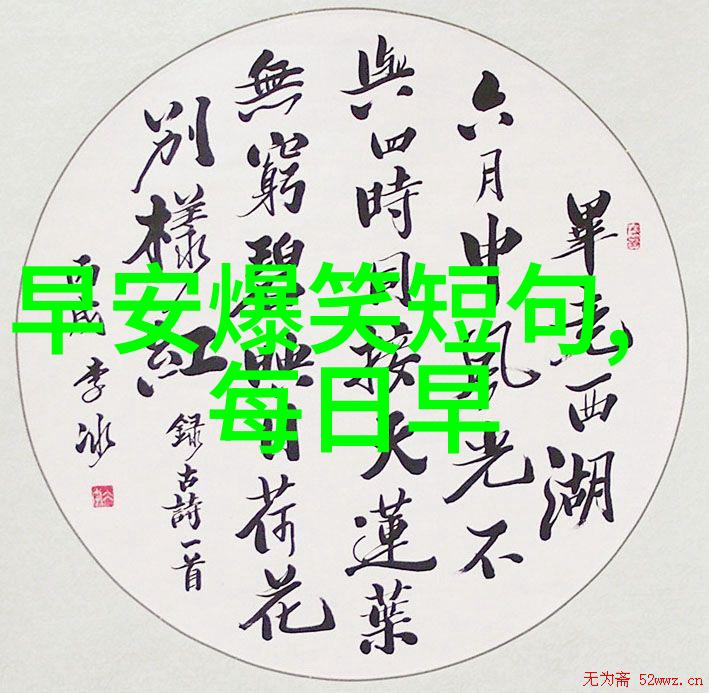 早安爆笑短句,
每日早
畢竟西湖
六月中風光不
與四時同接天蓮葉
無窮碧映日荷花
別樣紅 錄古詩一首
丙戌 李冰
无为斋 52wwz.cn